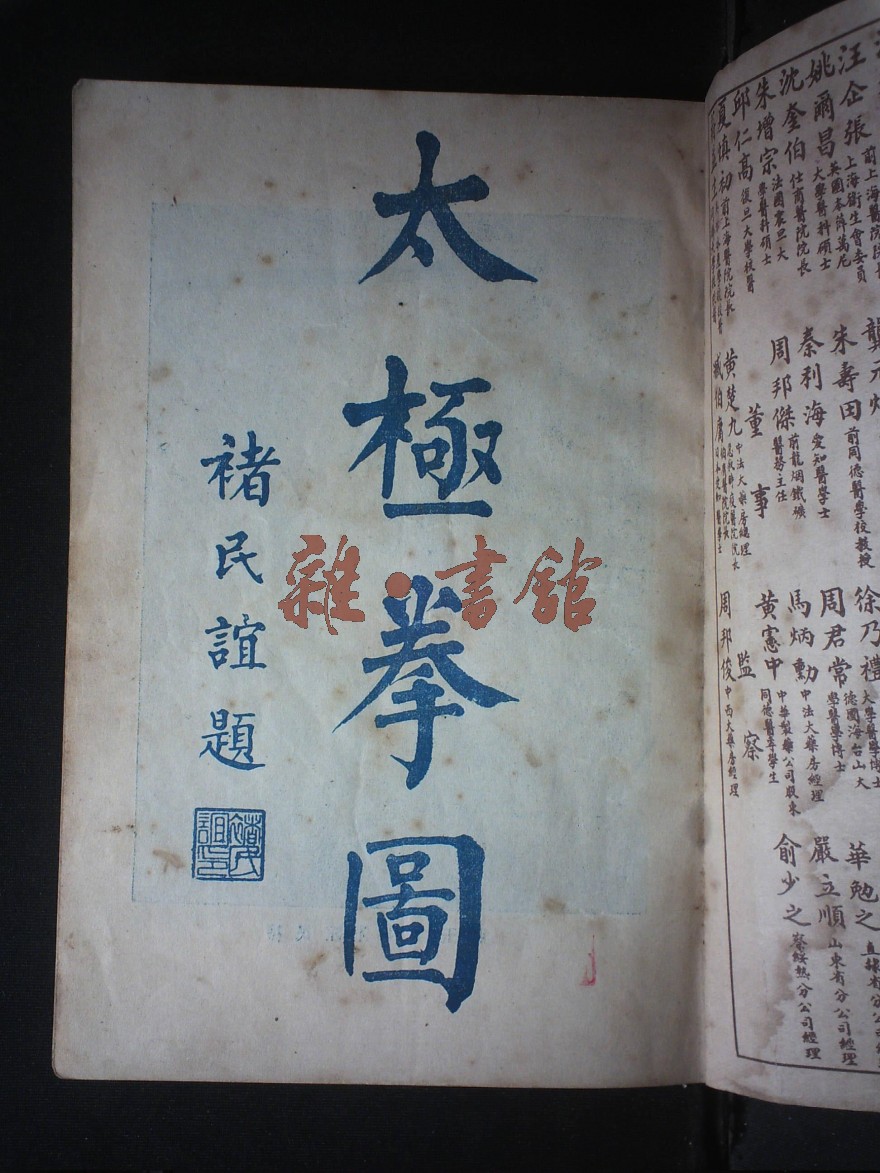 太極拳圖
褚民誼題
雜·書館
汪企張 上海衛生會委員
姚爾昌 大學醫科碩士
沈奎伯 仕商醫院院長
朱增宗 法國震旦大學醫科碩士
邱仁高 復旦大學校醫
夏慎初 前上海醫院院長
朱壽田 前同德醫學校教授
秦利海 愛知醫學士
周邦傑 前龍烟鐵礦醫務主任
董事
黃楚九 中法大藥房總理
臧伯庸
徐乃禮 大學醫學博士
周君常 德國海台山大學醫學博士
馬炳勳 中法大藥房經理
黃憲中 同德醫專學生
監察
周邦俊 中西大藥房經理
華勉之
嚴立順 山東省分公司經理
俞少之 察綏熱分公司經理